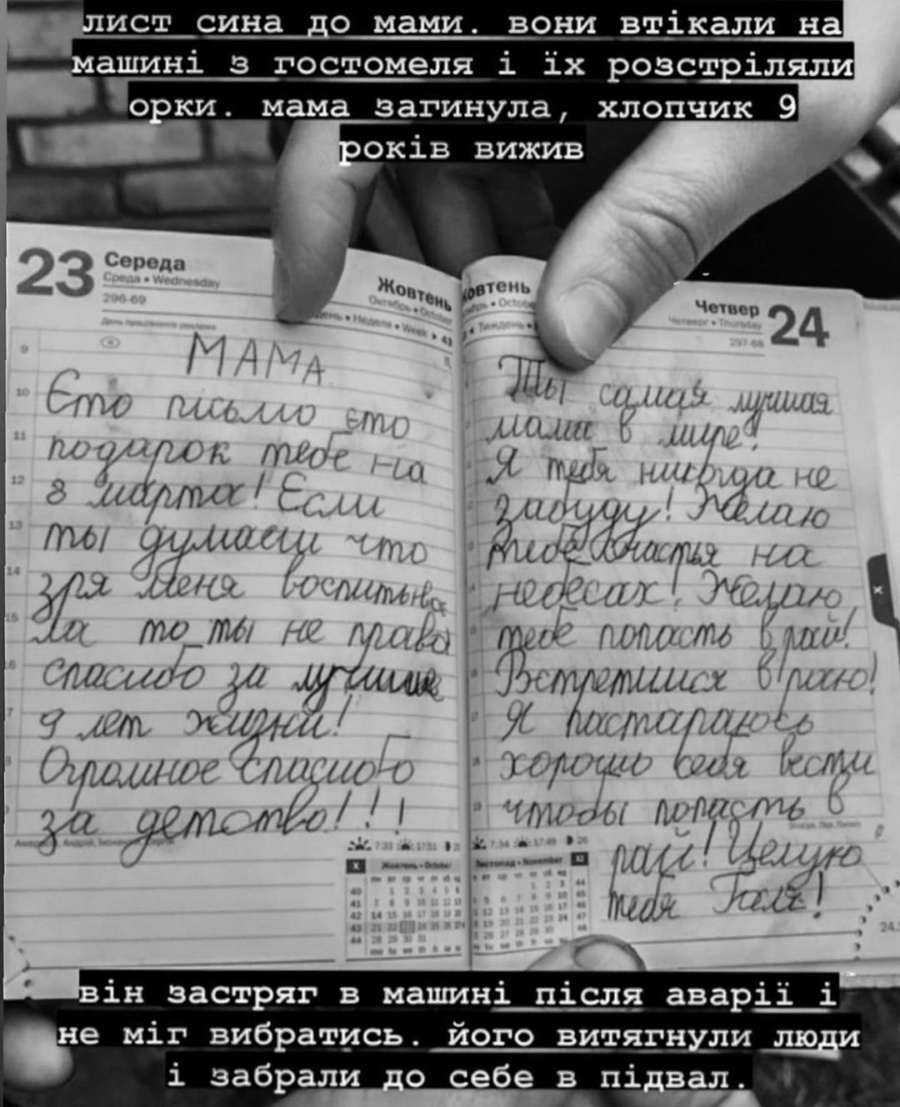 лист сина до мами. вони втікали на
машині з гостомеля і їх розстріляли
орки. мама загинула, хлопчик 9
років вижив
23 Середа
Среда • Wednesday
296-69
Жовтень
Октябрь • October
Неделя • Week 43
МАМА
Єто пісьмо єто
подарок тебе на
8 марта! Єсли
ты думаеш что
зря меня воспитыва
ла то ты не права
спасибо за лучшие
9 лет жизни!
Огромное спасибо
за детство!!!
Жовтень
Четвер 24
Четверг • Thursday
297-68
Ты самая лучшая
мама в мире!
Я тебя никогда не
забуду! Желаю
тебе счастья на
небесах! Желаю
тебе попасть в рай!
Встретимся в раю!
Я пастараюсь
хорошо себя вести
чтобы попасть в
рай! Целую
тебя Галя!
7:33 17:51
X Жовтень • October
7:34 17:49
Листопад • November XI
він застряг в машині після аварії і
не міг вибратись. його витягнули люди
і забрали до себе в підвал.